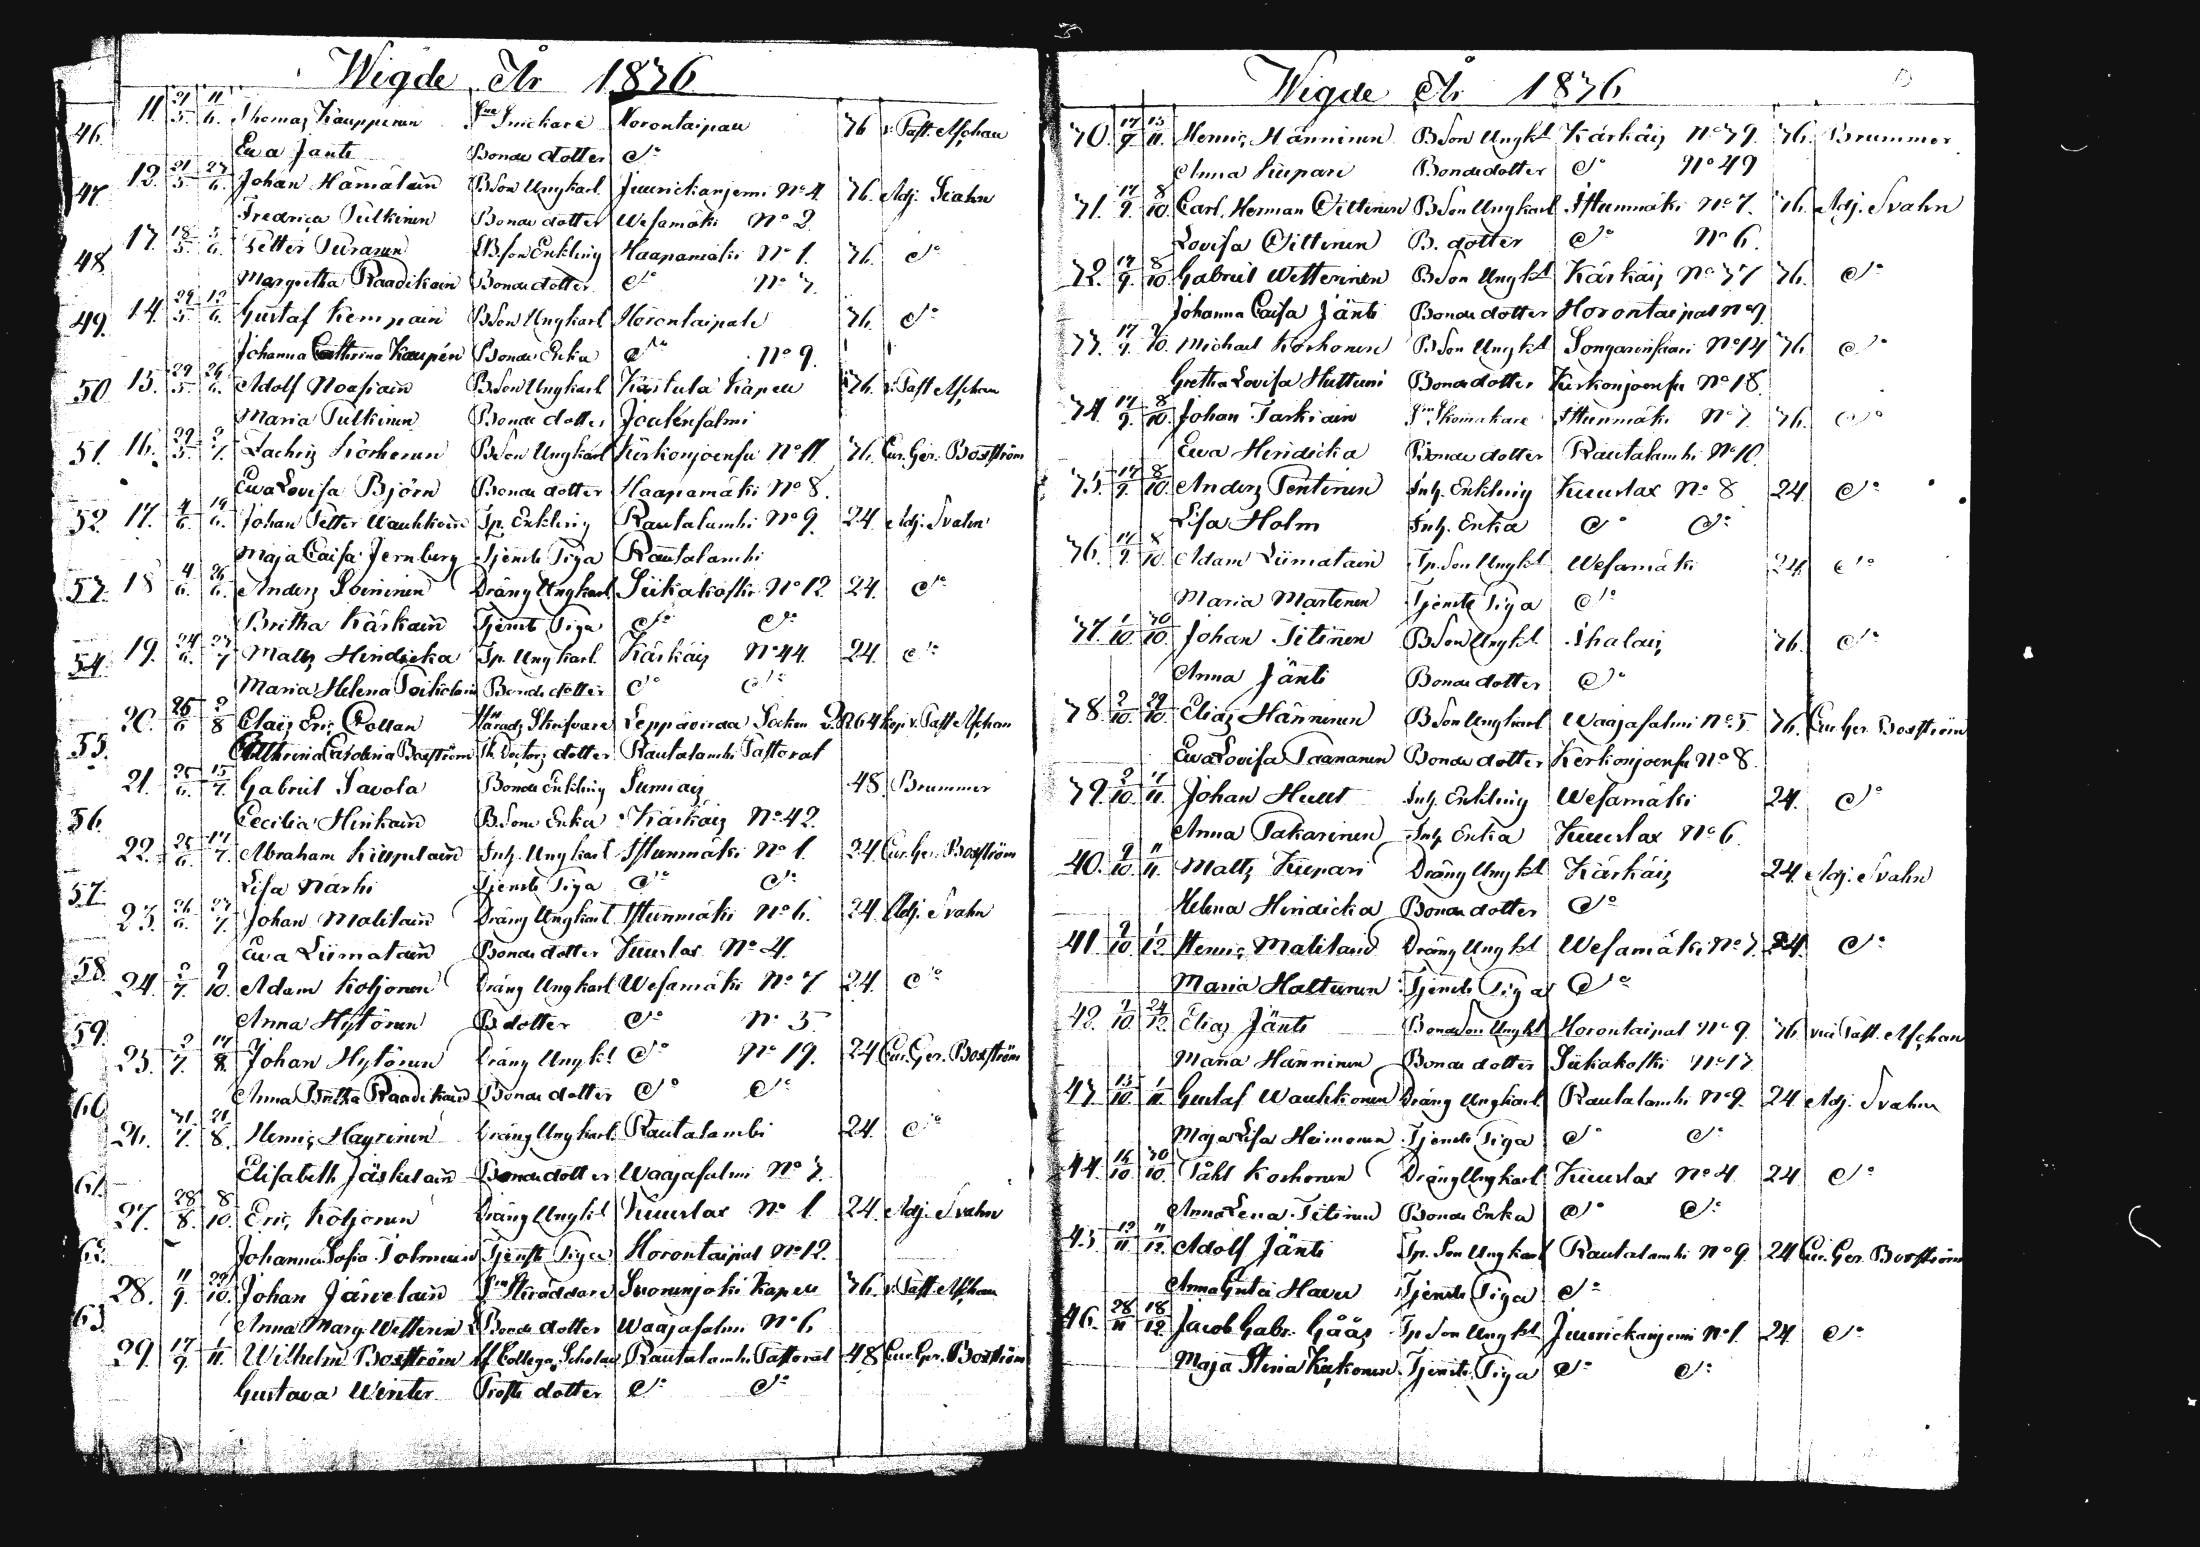 Wigde År 1836
46. 11. 21/5. 11/6. Thomas Kaupperinen Snickare Horontaipau 36 v. Past. Aschan
Ewa Jänti Bonde dotter do
47. 12. 21/5. 27/6. Johan Hämäläin BSon Ungkarl Juurickaniemi No 4. 36. Adj. Svahn
Fredrica Pulkinen Bonde dotter Wesamäki No 2.
48. 13. 18/5. 5/6. Petter Puranen BSon Enkling Haapamäki No 1. 36. do
Margretha Raadikain Bonde dotter do No 3.
49. 14. 29/5. 12/6. Gustaf Kempain BSon Ungkarl Horontaipale 36. do
Johanna Cathrina Kaupén Bonde Enka do No 9.
50. 15. 29/5. 26/6. Adolf Noasiain BSon Ungkarl Kärtula Kapell 36. v. Past Aschan
Maria Pulkinen Bonde dotter Joutensalmi
51. 16. 29/5. 2/7. Zachris Korhonen BSon Ungkarl Kerkonjoensu No 11. 36. Cur. Ger. Boxström
Ewa Lovisa Björn Bonde dotter Haapamäki No 8.
52. 17. 4/6. 19/6. Johan Petter Wauhkoin Tp. Enkling Rautalambi No 9. 24. Adj. Svahn
Maja Caisa Jernberg Tjenste Piga Rautalambi
53. 18 4/6. 26/6. Anders Soininen Dräng Ungkarl Siikakoski No 12. 24. do
Britha Kärkäin Tjenst. Piga do do
54. 19. 24/6. 23/7 Matts Hindricka Tp. Ungkarl Kärkäis No 44. 24. do
Maria Helena Poikelain Bonde dotter do do
55. 20. 25/6 2/8 Claës Eric Collan Härads Skrifvare Leppävirda Socken v. Past Aschan
Cathrina Carolina Boxström Ph Doctors dotter Rautalambi Pastorat
21. 25/6. 15/7. Gabriel Savola Bonde Enkling Sumiais 48. Brummer
56. Cecilia Hinkain B.Sons Enka Kärkäis No 42.
22. 25/6. 17/7. Abraham Kiupelain Inh. Ungkarl Istunmäki No 1. 24. Cur. Ger. Boxström
57. Lisa Närhi Tjenste Piga do do
23. 26/6. 27/7. Johan Malilain Dräng Ungkarl Istunmäki No 6. 24. Adj. Svahn
Ewa Liimatain Bonde dotter Kuuslax No 4.
58. 24. 2/7. 9/10. Adam Koljonen Dräng Ungkarl Wesamäki No 7 24. do
Anna Hytönen B. dotter do No 5
59. 25. 2/7. 14/8. Johan Hytönen Dräng Ungkl do No 19. 24 Cur. Ger. Boxström
Anna Britha Raadikain Bonde dotter do do
60. 26. 31/7. 21/8. Henric Häyrinen Dräng Ungkarl Rautalambi 24. do
61. Elisabeth Jäskelain Bonde dotter Waajasalmi No 3.
27. 28/8. 8/10. Eric Koljonen Dräng Ungkl Kuuslax No 1 24. Adj. Svahn
62. Johanna Sofia Tolmuin Tjenste Piga Horontaipal No 12.
28. 11/9. 29/10. Johan Järvelain Skräddare Suonenjoki Kapell 36. v. Past Aschan
63. Anna Marg. Wetterin Bonde dotter Waajasalmi No 6
29. 17/9. 1/11. Wilhelm Boxström Collega Scholae Rautalambi Pastorat 48 Cur. Ger. Boxström
Gustava Winter Prosts dotter do do
Wigde År 1836
30. 17/9. 13/11. Henric Hänninen BSon Ungkl Kärkäis No 39. 36. Brummer
Anna Kiupari Bonde dotter do No 49
31. 17/9. 8/10. Carl Herman Oittinen BSon Ungkarl Istunmäki No 7. 36. Adj. Svahn
Lovisa Oittinen B. dotter do No 6.
32. 17/9. 8/10. Gabriel Wetterinen BSon Ungkl Kärkäis No 37 36. do
Johanna Caisa Jänti Bonde dotter Horontaipal No 9.
33. 17/9. 9/10. Michael Korhonen BSon Ungkl Songarinsaari No 14 36 do
Gretha Lovisa Huttuni Bonde dotter Kerkonjoensu No 18.
34. 17/9. 8/10. Johan Tarkiain Skomakare Istunmäki No 7. 36. do
Ewa Hindricka Bonde dotter Rautalambi No 10.
35. 17/9. 8/10. Anders Pentinen Inh. Enkling Kuuslax No 8 24. do
Lisa Holm Inh. Enka do do
36. 17/9. 8/10. Adam Liimatain Tp. Son Ungkl Wesamäki 24. do
Maria Martinen Tjenste Piga do
37. 1/10. 30/10. Johan Titinen BSon Ungkl Ihalais 36. do
Anna Jänti Bonde dotter do
38. 2/10. 29/10. Elias Hänninen BSon Ungkarl Waajasalmi No 5 36. Cur. Ger. Boxström
Ewa Lovisa Taananen Bonde dotter Kerkonjoensu No 8.
39. 2/10. 4/11. Johan Huut Inh. Enkling Wesamäki 24. do
Anna Pakarinen Inh. Enka Kuuslax No 6.
40. 9/10. 11/11. Matts Kiupari Dräng Ungkl Kärkäis 24. Adj. Svahn
Helena Hindricka Bonde dotter do
41. 9/10. 1/12. Henric Malilain Dräng Ungkl Wesamäki No 3. 24. do
Maria Halttunen Tjenste Piga do
42. 9/10. 24/12. Elias Jänti Bonde Son Ungkl Horontaipal No 9. 36 vice Past. Aschan
Maria Hänninen Bonde dotter Siikakoski No 13
43. 15/10. 1/11. Gustaf Wauhkonen Dräng Ungkarl Rautalambi No 9. 24 Adj. Svahn
Maja Lisa Heimonen Tjenste Piga do do
44. 16/10. 30/10. Påhl Korhonen Dräng Ungkarl Kuuslax No 4. 24 do
Anna Lena Titinen Bonde Enka do do
45. 19/11. 11/12. Adolf Jänti Tp. Son Ungkarl Rautalambi No 9. 24 Cur. Ger. Boxström
Anna Greta Haver Tjenste Piga do
46. 28/11. 18/12. Jacob Gabr. Gåås Tp Son Ungkl Juurickaniemi No 1. 24. do
Maja Stina Kækonen Tjenste Piga do do